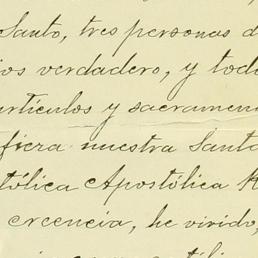 Santo, tres personas d
ios verdadero, y todo
artículos y sacramen
fiera nuestra Santa
tólica Apostólica R
creencia, he vivido,